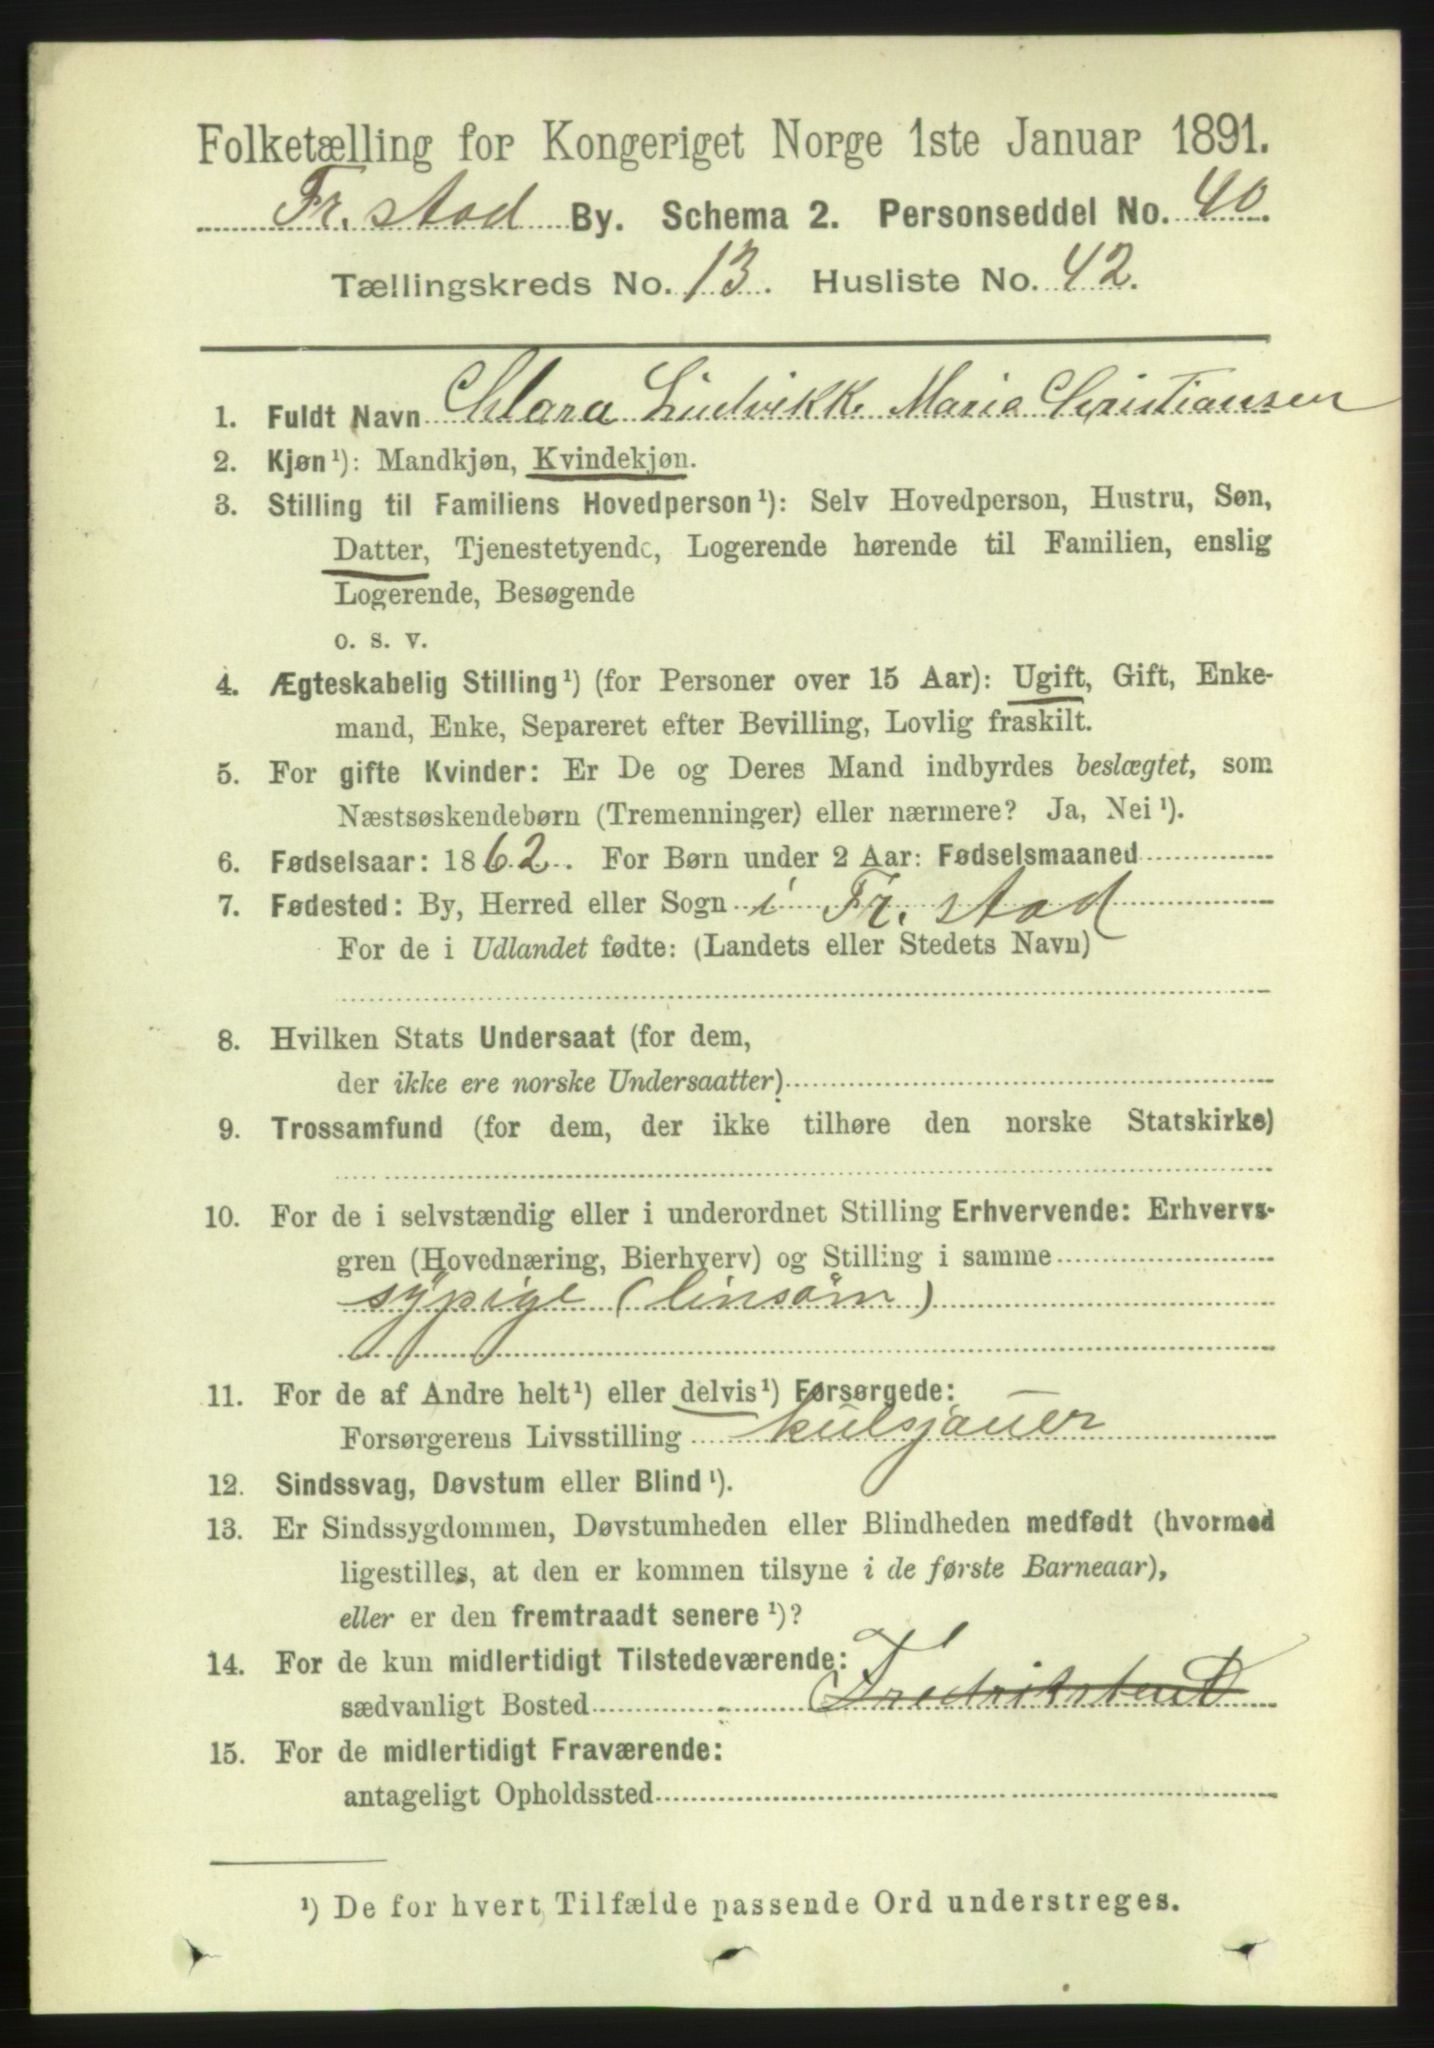 Folketælling for Kongeriget Norge 1ste Januar 1891.
Fr. stad By. Schema 2. Personseddel No. 40.
Tællingskreds No. 13. Husliste No. 42.
1. Fuldt Navn Clara Ludvikke Marie Christiansen
2. Kjøn¹): Mandkjøn, Kvindekjøn.
3. Stilling til Familiens Hovedperson¹): Selv Hovedperson, Hustru, Søn,
Datter, Tjenestetyende, Logerende hørende til Familien, enslig
Logerende, Besøgende
o. s. v.
4. Ægteskabelig Stilling¹) (for Personer over 15 Aar): Ugift, Gift, Enke-
mand, Enke, Separeret efter Bevilling, Lovlig fraskilt.
5. For gifte Kvinder: Er De og Deres Mand indbyrdes beslægtet, som
Næstsøskendebørn (Tremenninger) eller nærmere? Ja, Nei¹).
6. Fødselsaar: 1862. For Børn under 2 Aar: Fødselsmaaned
7. Fødested: By, Herred eller Sogn i Fr. stad
For de i Udlandet fødte: (Landets eller Stedets Navn)
8. Hvilken Stats Undersaat (for dem,
der ikke ere norske Undersaatter)
9. Trossamfund (for dem, der ikke tilhøre den norske Statskirke)
10. For de i selvstændig eller i underordnet Stilling Erhvervende: Erhvervs-
gren (Hovednæring, Bierhverv) og Stilling i samme
sypige (linsøm)
11. For de af Andre helt¹) eller delvis¹) Forsørgede:
Forsørgerens Livsstilling kulsjauer
12. Sindssvag, Døvstum eller Blind¹).
13. Er Sindssygdommen, Døvstumheden eller Blindheden medfødt (hvormed
ligestilles, at den er kommen tilsyne i de første Barneaar),
eller er den fremtraadt senere¹)?
14. For de kun midlertidigt Tilstedeværende:
sædvanligt Bosted Fredrikstad
15. For de midlertidigt Fraværende:
antageligt Opholdssted
¹) De for hvert Tilfælde passende Ord understreges.